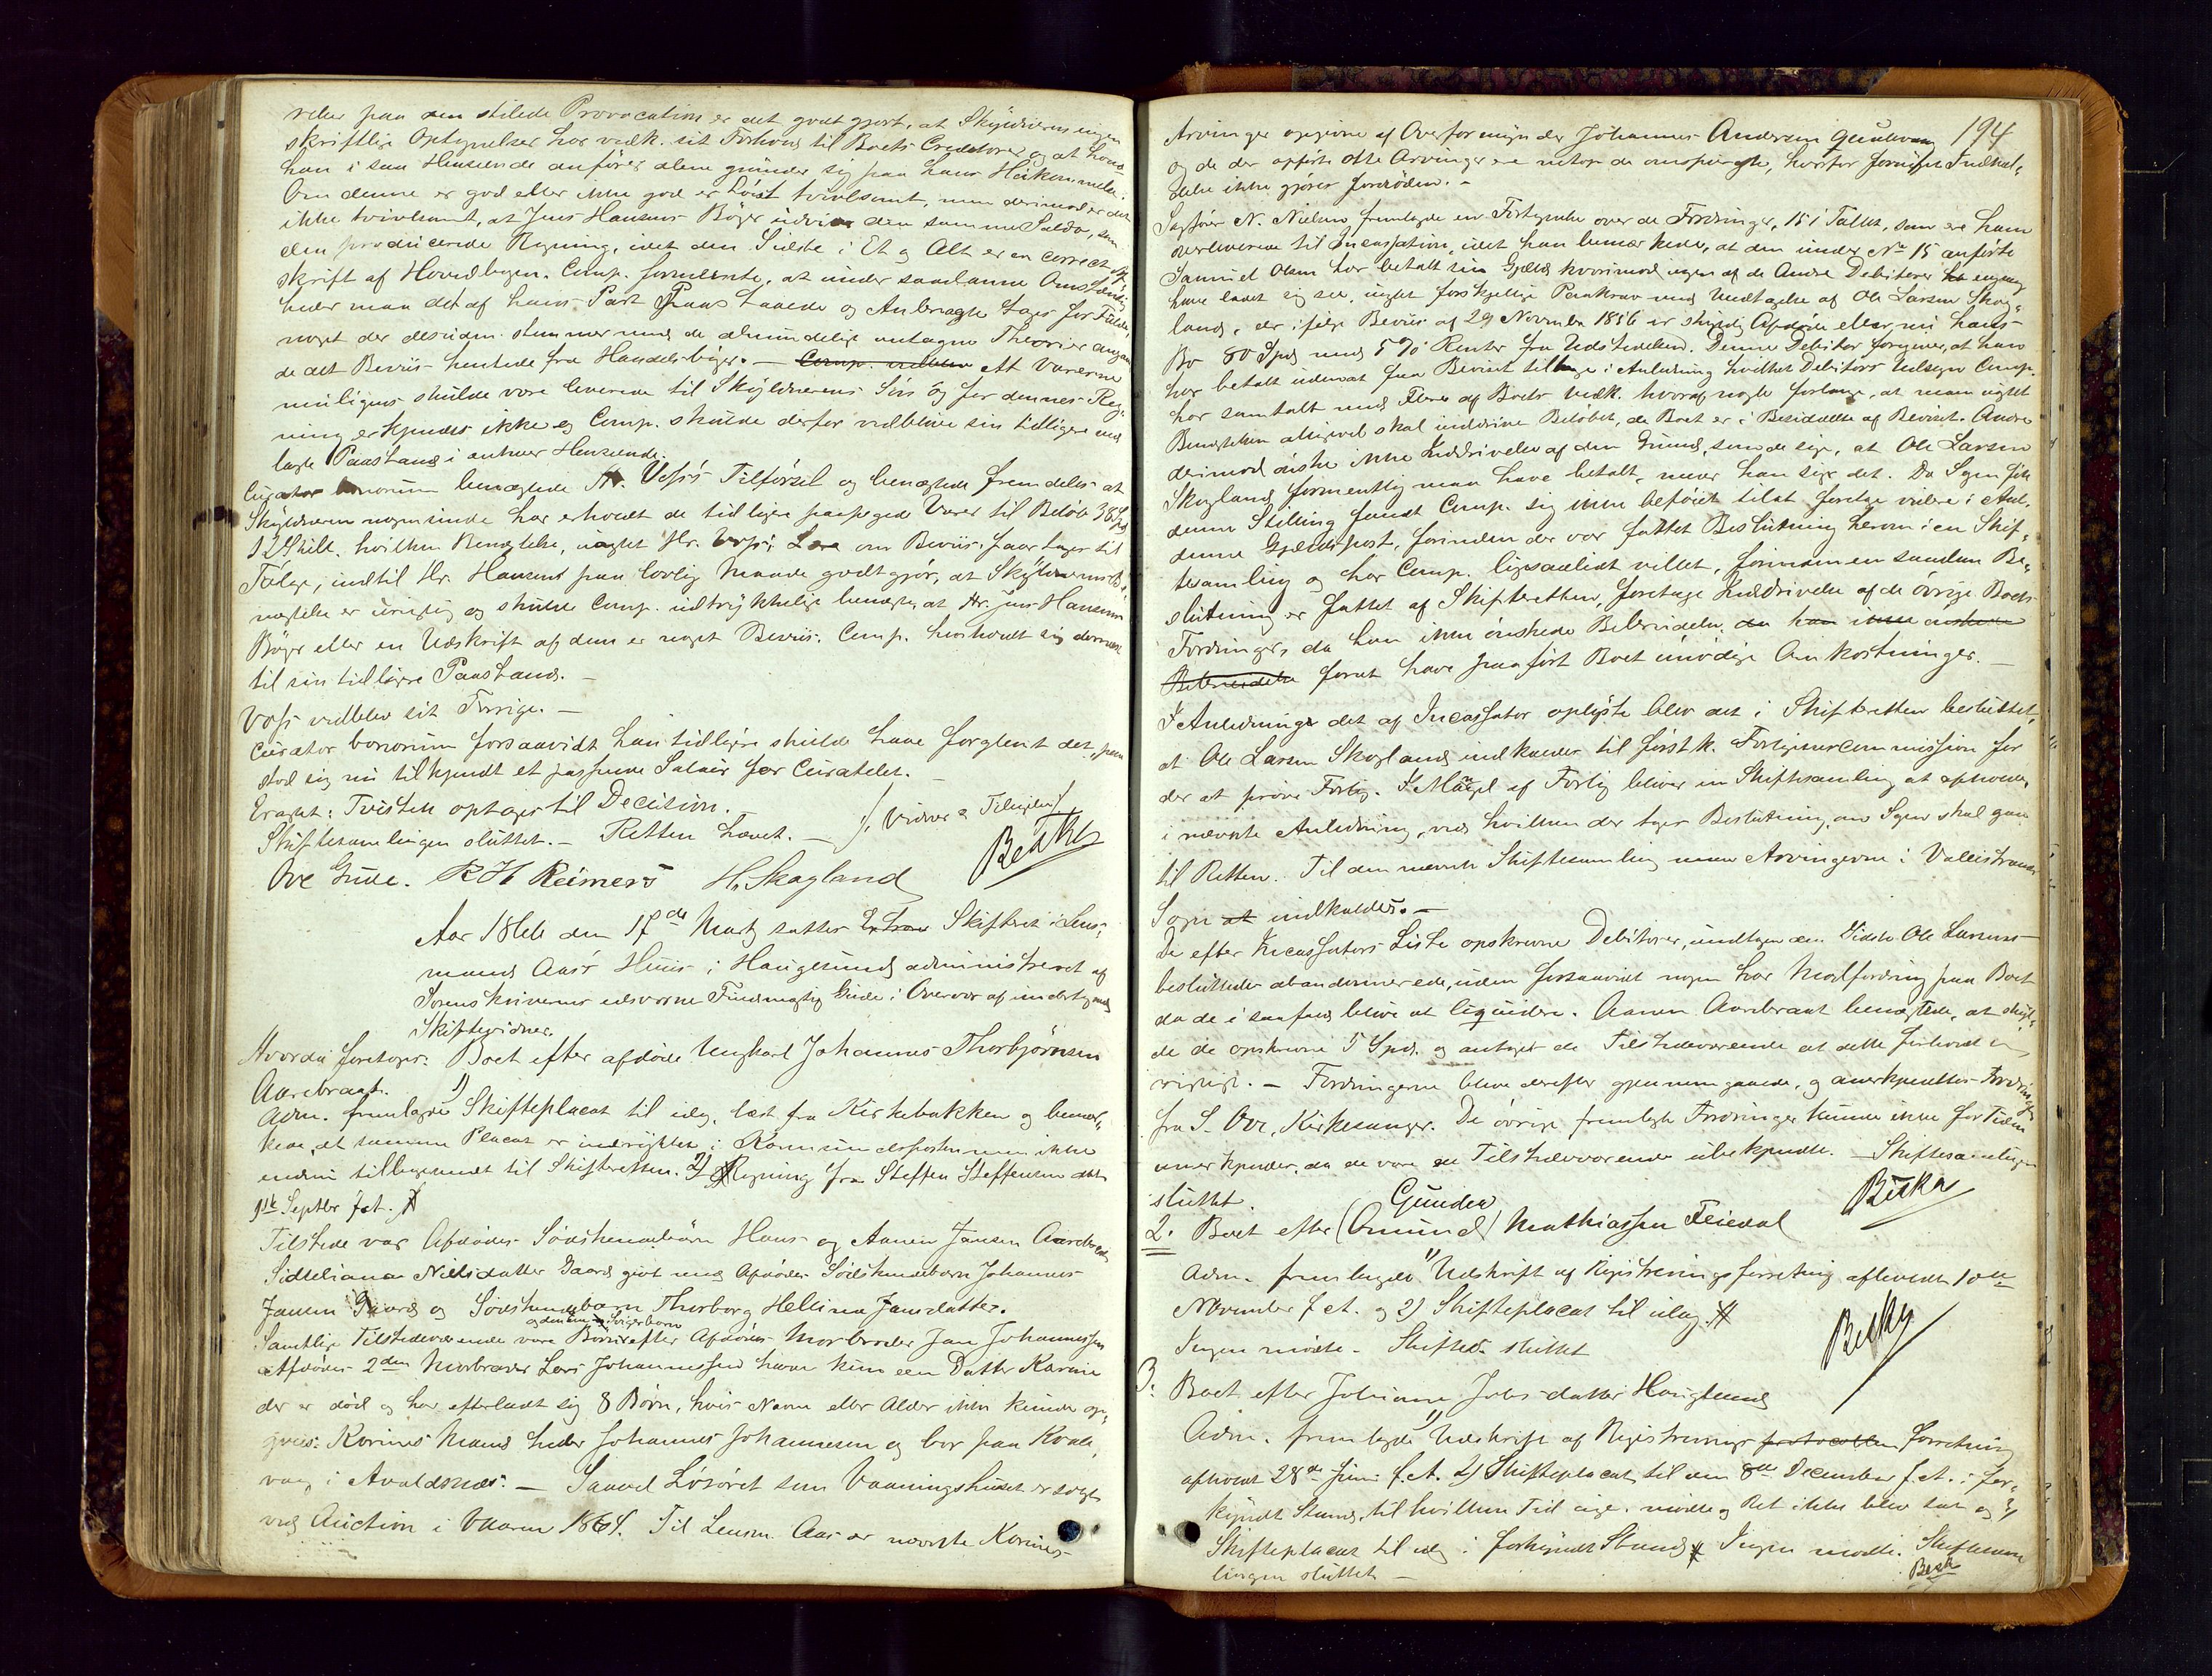 reber paa den stilede Provocation er det godtgjort, at Skyldneren ingen
skriftlig Optegnelser har vedk. sit Forhold til Boets Creditorer og at hvad
han i saa Henseende anfører alene grunder sig paa hans Hukommelse.
Om denne er god eller ikke god er høist tvivlsomt, men derimod er det
ikke tvivlsomt, at Jens Hansens Bøger udviser den samme Saldo, som
den producerede Regning, idet den Sidste i Et og Alt er en correct Af,
skrift af Hovedbogen. Comp. formeente, at under saadanne Omstændig,
heder maa det af hans Part Paastaaede og Anbragte tages for Fuldt,
noget der desuden stemmer med de almindelige antagne Theorier angaaen
de det Beviis hentede fra Handelsbøger. - Comp. At Varerne
muligens skulde være leverede til Skyldnerens Søn og for dennes Reg,
ning erkjendes ikke og Comp. skulde derfor vedblive sin tidligere ned
lagte Paastand i enhver Henseende.
Curator bonorum benægtede Hr. Voss's Tilførsel og benægtede fremdeles at
Skyldneren nogensinde har erholdt de tidligere paapegede Varer til Beløb 38 Spd
12 Skill. hvilken Benægtelse, uagtet Hr. Voss's Lære om Beviis faar tages til
Følge, indtil Hr. Hansens paa lovlig Maade godtgjør, at Skyldnerens Be,
nægtelse er urigtig og skulde Comp. udtrykkelig benægte, at Hr. Jens Hansens
Bøger eller en Udskrift af dem er noget Beviis. Comp. henholdt sig dernæst
til sin tidligere Paastand. -
Voss vedblev sit Forrige. -
Curator bonorum forsaavidt han tidligere skulde have forglemt det, paa
stod sig nu tilkjendt et passende Salair for Curatelet. -
Eragtet: Tvisten optages til Decision. -
Skiftesamlingen sluttet. - Retten hævet. - /: Vidner & Tilsigelse :/
Ove Gude. R H Reimers H. Skogland
Aar 1866 den 17de Marts sattes Extra Skifteret i Lens,
mand Aas's Huus i Haugesund administreret af
Sorenskriverens edsvorne Fuldmægtig Gude i Overvær af undertegnede
Skiftevidner.
Hvorda foretoges: Boet efter afdøde Ungkarl Johannes Thorbjørnsen
Aarebraat.
Adm. fremlagde 1) Skifteplacat til idag, læst fra Kirkebakken og bemær,
kede, at samme Placat er indrykket i Karmsundsposten men ikke
endnu tilbagesendt til Skifteretten. 2) Regning fra Steffen Steffensen dat.
9de Septbr f. A.
Tilstede var Afdødes Sødskendebørn Hans og Aanen Jansen Aarebraat
Sidseliana Nielsdatter Gaard givt med Afdødes Sødskendebarn Johannes
Jansen Gaard og Sødskendebarn Thorborg Helline Jansdatter.
Samtlige Tilstedeværende vare Børn og den ene Svigerbarn efter Afdødes Morbroder Jan Johannessen
Afdødes 2den Morbroder Lars Johannessen havde kun een Datter Karine
der er død og har efterladt sig 8 Børn, hvis Navne eller Alder ikke kunde op,
gives. Karines Mand heder Johannes Johannesen og bor paa Kvale,
vaag i Avaldsnæs. - Saavel Løsøret som Vaaningshuset er solgt
ved Auction i Vaaren 1864. Til Lensm. Aas er nævnte Karines
194
Arvinger opgivne af Overformynder Johannes Andersen
og de der opførte otte Arvinger ere netop de omspurgte, hvorfor fornyet Indkal,
delse ikke gjøres fornøden. -
Sagfører N. Nielsen fremlagde en Fortegnelse over de Fordringer, 15 i Tallet, som ere ham
overleverede til Incassation, idet han bemærkede, at den under No 15 anførte
Samuel Olsen har betalt sin Gjæld, hvorimod ingen af de Andre Debitorer engang
have ladet sig see, uagtet forskjellige Paakrav med Undtagelse af Ole Larsen Skog,
land, der ifølge Beviis af 29 November 1856 er skyldig Afdøde eller nu hans
Bo 80 Spd med 5 % Renter fra Udstedelsen. Denne Debitor foregiver, at han
har betalt uden at faa Beviset tilbage i Anledning hvilket Debitors Udsagn Comp.
har samtalt med Flere af Boets vedk. hvoraf nogle forlange, at man uagtet
Benægtelsen alligevel skal inddrive Beløbet, da Boet er i Besiddelse af Beviset. Andre
derimod ønske ikke Inddrivelse af den Grund, som de sige, at Ole Larsen
Skogland formentlig maa have betalt, naar han siger det. Da Sagen fik
denne Stilling fandt Comp. sig ikke beføiet til at foretage videre i Anl.
denne Gjældspost, forinden der var fattet Beslutning herom i en Skif,
tesamling og har Comp. ligesaalidt villet, forinden en saadan Be,
slutning er fattet af Skifteretten, foretage Inddrivelse af de øvrige Boets
Fordringer, da han ikke ønskede Bebreidelse da han ikke ønskede
Bebreidelse for at have paaført Boet unødige Omkostninger. -
I Anledning det af Incassator oplyste blev det i Skifteretten besluttet,
at Ole Larsen Skogland indkaldes til førstk. Forligelsescommission for
der at prøve Forlig. I Mangel af Forlig bliver en Skiftesamling at afholde,
i nævnte Anledning, ved hvilken der tages Beslutning, om Sagen skal gaa
til Retten. Til den nævnte Skiftesamling maa Arvingerne i
Sogn at indkaldes. -
De efter Incassators Liste opskrevne Debitorer, undtagen den Sidste Ole Larsens
besluttedes abandonnerede, uden forsaavidt nogen har Modfordring paa Boet
da de i saa fald blive at liquidere. Aanen Aarebraat benægtede, at skyl,
de de opskrevne 5 Spd. og antoges de Tilstedeværende at dette forhold er
rigtigt. - Fordringerne bleve derefter gjennemgaaede, og anerkjendtes Fordringen
fra S. Ove, Kirkesanger. De øvrige fremlagte Fordringer kunde ikke for Tiden
anerkjendes, da de vare de Tilstedeværende ubekjendte. - Skiftesamlingen
sluttet.
2. Boet efter (Omund) Gunder Mathiassen Feiedal
Adm. fremlagde 1) Udskrift af Registreringsforretning afholdt 10de
November f. A. og 2) Skifteplacat til idag.
Ingen mødte - Skiftet sluttet
3. Boet efter Johanne Jobs-datter Haugesund
Adm. fremlagde 1) Udskrift af Registrerings protocollen forretning
afholdt 28de Juni f. A. 2) Skifteplacat til den 8de December f. A. i for,
kyndt Stand, til hvilken Tid ingen mødte og Ret ikke blev sat og 3)
Skifteplacat til idag i forkyndt Stand. Ingen mødte. Skiftesam
lingen sluttet -